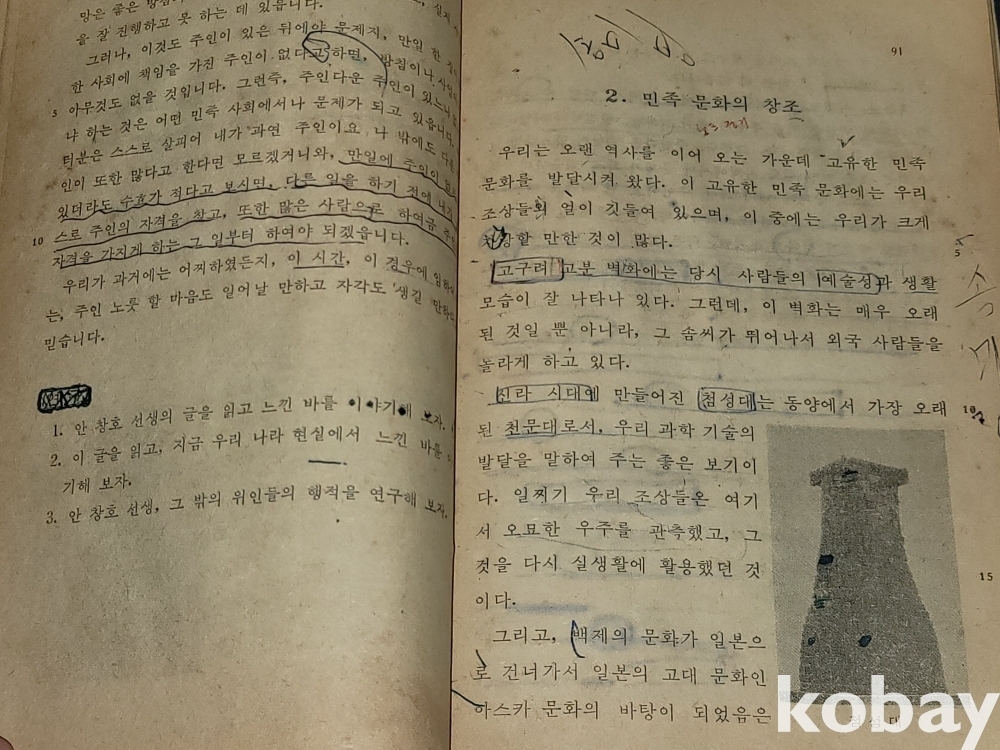 망은 좋은 방침이
을 잘 진행하고 못 하는 데 있읍니다.
그러나, 이것도 주인이 있은 뒤에야 문제지, 만일 한
한 사회에 책임을 가진 주인이 없다고 하면, 방침이나
5 아무것도 없을 것입니다. 그런즉, 주인다운 주인이 있느냐
냐 하는 것은 어떤 민족 사회에서나 문제가 되고 있읍니다.
터분은 스스로 살피어 내가 과연 주인이요, 나 밖에도
인이 또한 많다고 한다면 모르겠거니와, 만일에 주인이
있더라도 수효가 적다고 보시면, 다른 일을 하기 전에 내가
10 스로 주인의 자격을 찾고, 또한 많은 사람으로 하여금
자격을 가지게 하는 그 일부터 하여야 되겠읍니다.
우리가 과거에는 어찌하였든지, 이 시간, 이 경우에
는, 주인 노릇 할 마음도 일어날 만하고 자각도 생길 만하
믿습니다.
1. 안 창호 선생의 글을 읽고 느낀 바를 이야기해 보자.
2. 이 글을 읽고, 지금 우리 나라 현실에서 느낀 바를
기해 보자.
3. 안 창호 선생, 그 밖의 위인들의 행적을 연구해 보자.
91
2. 민족 문화의 창조
우리는 오랜 역사를 이어 오는 가운데 고유한 민족
문화를 발달시켜 왔다. 이 고유한 민족 문화에는 우리
조상들의 얼이 깃들여 있으며, 이 중에는 우리가 크게
자랑할 만한 것이 많다.
5
고구려 고분 벽화에는 당시 사람들의 예술성과 생활
모습이 잘 나타나 있다. 그런데, 이 벽화는 매우 오래
된 것일 뿐 아니라, 그 솜씨가 뛰어나서 외국 사람들을
놀라게 하고 있다.
신라 시대에 만들어진 첨성대는 동양에서 가장 오래 10
된 천문대로서, 우리 과학 기술의
발달을 말하여 주는 좋은 보기이
다. 일찌기 우리 조상들은 여기
서 오묘한 우주를 관측했고, 그
것을 다시 실생활에 활용했던 것
15
이다.
그리고, 백제의 문화가 일본으
로 건너가서 일본의 고대 문화인
아스카 문화의 바탕이 되었음은
첨성대
kobay